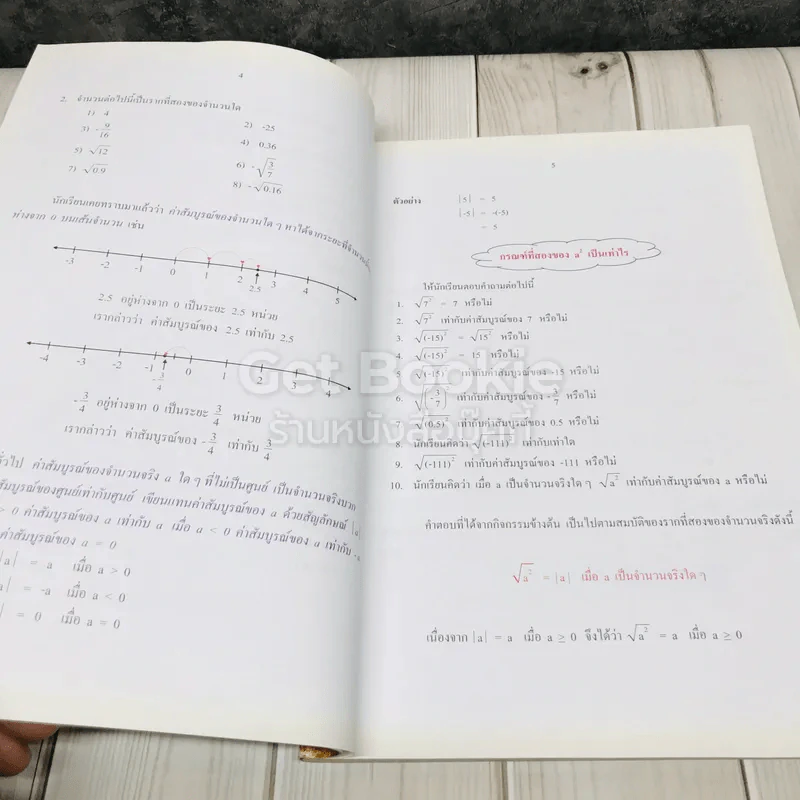 4
2. จำนวนต่อไปนี้เป็นรากที่สองของจำนวนใด
1) 4
2) -25
3) -9/16
4) 0.36
5) √12
6) -√(3/7)
7) √0.9
8) -√0.16
นักเรียนเคยทราบมาแล้วว่า ค่าสัมบูรณ์ของจำนวนใด ๆ หาได้จากระยะที่จำนวนนั้น
ห่างจาก 0 บนเส้นจำนวน เช่น
-4 -3 -2 -1 0 1 2 3 4 5
2.5
2.5 อยู่ห่างจาก 0 เป็นระยะ 2.5 หน่วย
เรากล่าวว่า ค่าสัมบูรณ์ของ 2.5 เท่ากับ 2.5
-4 -3 -2 -1 0 1 2 3 4
-3/4
-3/4 อยู่ห่างจาก 0 เป็นระยะ 3/4 หน่วย
เรากล่าวว่า ค่าสัมบูรณ์ของ -3/4 เท่ากับ 3/4
ค่าสัมบูรณ์ของจำนวนจริง a ใด ๆ ที่ไม่เป็นศูนย์ เป็นจำนวนจริงบวก
สัมบูรณ์ของศูนย์เท่ากับศูนย์ เขียนแทนค่าสัมบูรณ์ของ a ด้วยสัญลักษณ์ |a|
> 0 ค่าสัมบูรณ์ของ a เท่ากับ a เมื่อ a < 0 ค่าสัมบูรณ์ของ a เท่ากับ -a
ค่าสัมบูรณ์ของ a = 0
|a| = a เมื่อ a > 0
a| = -a เมื่อ a < 0
| = 0 เมื่อ a = 0
5
ตัวอย่าง |5| = 5
|-5| = -(-5)
= 5
กรณฑ์ที่สองของ a² เป็นเท่าไร
ให้นักเรียนตอบคำถามต่อไปนี้
1. √7² = 7 หรือไม่
2. √7² เท่ากับค่าสัมบูรณ์ของ 7 หรือไม่
3. √(-15)² = √15² หรือไม่
4. √(-15)² = 15 หรือไม่
5. √(-15)² เท่ากับค่าสัมบูรณ์ของ -15 หรือไม่
6. √(-3/7)² เท่ากับค่าสัมบูรณ์ของ -3/7 หรือไม่
7. √(0.5)² เท่ากับค่าสัมบูรณ์ของ 0.5 หรือไม่
8. นักเรียนคิดว่า √(-111)² เท่ากับเท่าใด
9. √(-111)² เท่ากับค่าสัมบูรณ์ของ -111 หรือไม่
10. นักเรียนคิดว่า เมื่อ a เป็นจำนวนจริงใด ๆ √a² เท่ากับค่าสัมบูรณ์ของ a หรือไม่
คำตอบที่ได้จากกิจกรรมข้างต้น เป็นไปตามสมบัติของรากที่สองของจำนวนจริงดังนี้
√a² = |a| เมื่อ a เป็นจำนวนจริงใด ๆ
เนื่องจาก |a| = a เมื่อ a ≥ 0 จึงได้ว่า √a² = a เมื่อ a ≥ 0
Get Bookie
ร้านหนังสือบุ๊คกี้